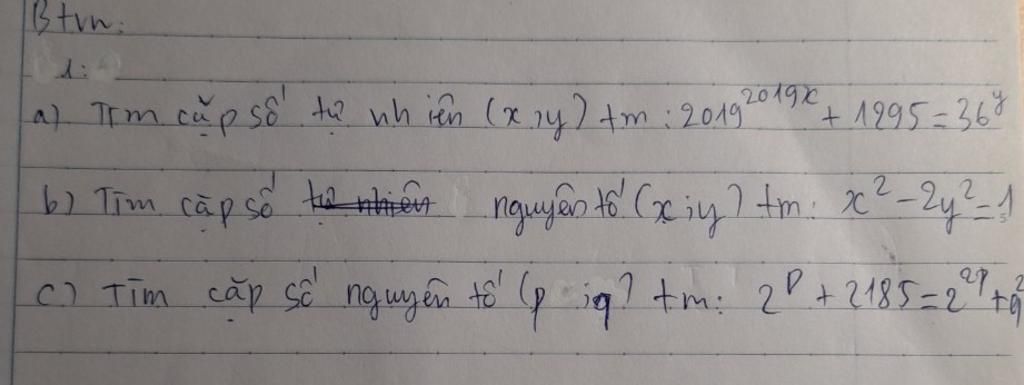 Btvn:
1:
a) Tìm cặp số tự nhiên (x;y) tm: 2019^2019x + 1295 = 36^y
b) Tìm cặp số tự nhiên nguyên tố (x;y) tm: x² - 2y² = 1
c) Tìm cặp số nguyên tố (p;q) tm: 2^p + 2185 = 2^2p + q²